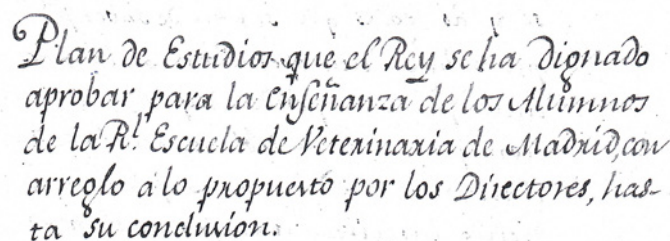 Plan de Estudios que el Rey se ha dignado
aprobar para la enseñanza de los Alumnos
de la Rl. Escuela de Veterinaria de Madrid, con
arreglo a lo propuesto por los Directores, has-
ta su conclusion.